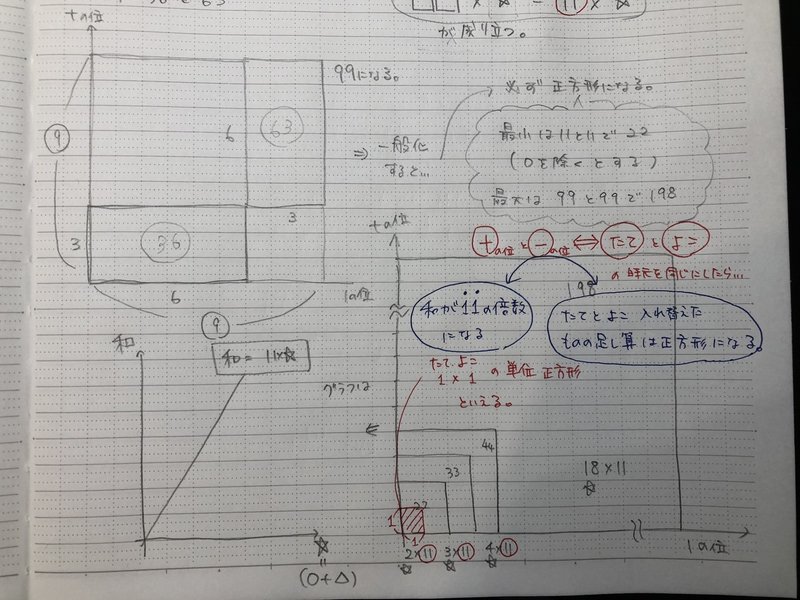 が成り立つ。
十の位
99になる。
9
6
63
3
36
3
6
1の位
9
⇒ 一般化
すると…
必ず正方形になる。
最小は11と11で22
(0を除くとする)
最大は 99と99で198
十の位と一の位⇔たてとよこ
の時元を同じにしたら…
十の位
198
和が11の倍数
になる
たてとよこ 入れ替えた
ものの足し算は正方形になる。
和
和=11×☆
グラフは
☆
(○+△)
たて よこ
1 × 1 の単位正方形
といえる。
44
33
22
1
1
18×11
☆
2×11
☆
3×11
☆
4×11
☆
1の位